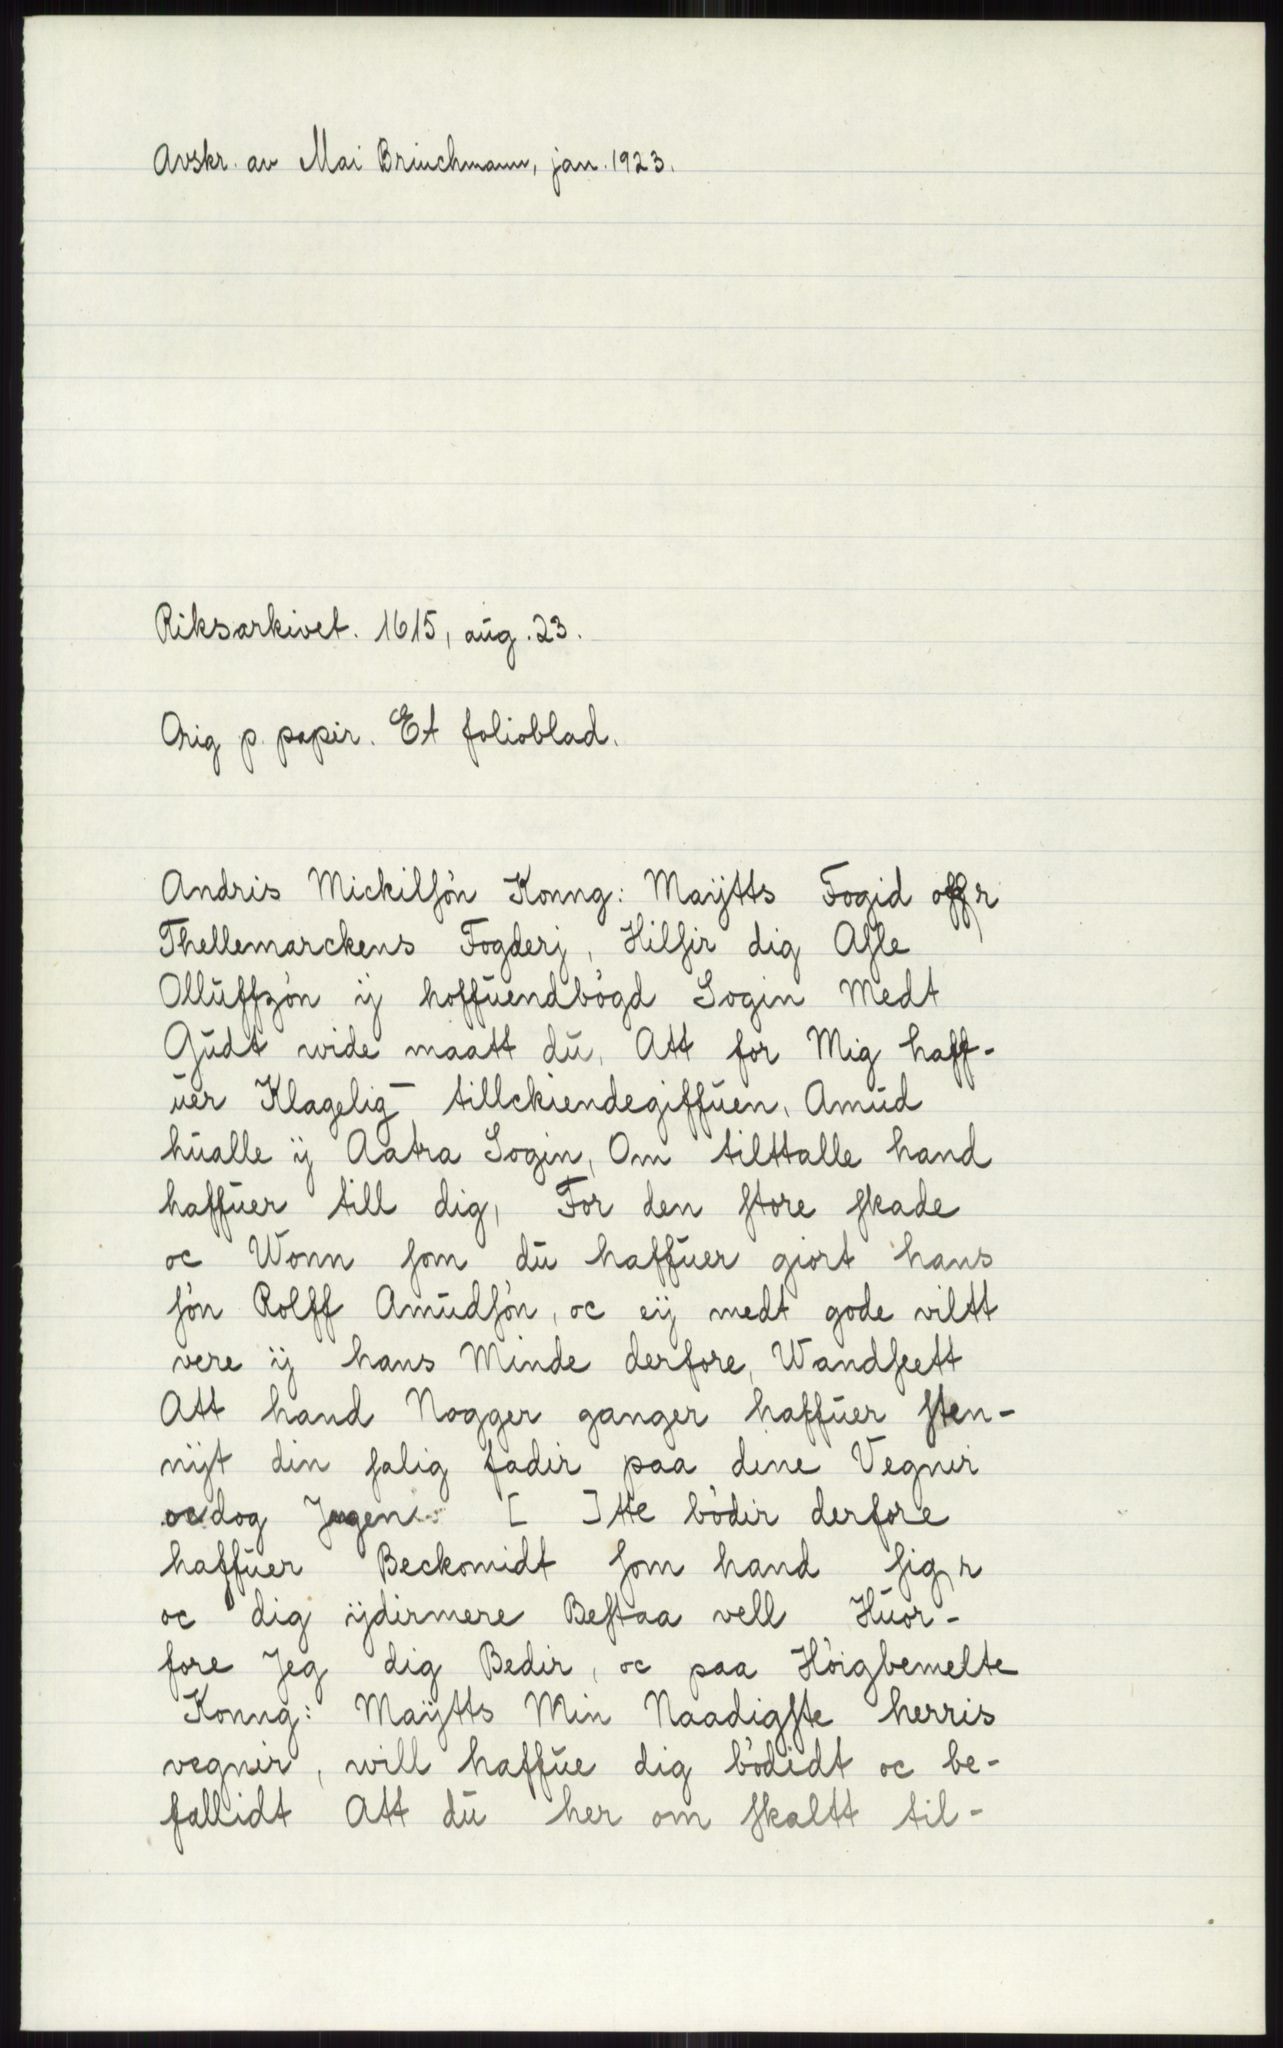 Avskr. av Mai Brinchmann, jan. 1923.
Riksarkivet. 1615, aug. 23.
Orig p. papir. Et folioblad.
Andris Mickilsøn Konng: Maÿtts Fogid offr
Thellemarckens Fogderj, Hilsir dig Asle
Olluffzøn ij hoffuendbøgd Sogin Medt
Gudt wide maatt du, Att for Mig haff-
uer Klagelig tillckiendegiffuen, Amud
hualle ij Aatra Sogin, Om tilttalle hand
haffuer till dig, For den store skade
oc Wonn som du haffuer giort hans
søn Rolff Amudsøn, oc eij medt gode viltt
vere ij hans Minde derfore, Wandseett
Att hand Nogger ganger haffuer sten-
nijt din salig fadir paa dine Vegnir
oc dog Jngen [ ]tte bødir derfore
haffuer Beckomidt som hand sigr
oc dig ijdirmere Bestaa vell Huor-
fore Jeg dig Bedir, oc paa Høigbemelte
Konng: Maÿtts Min Naadigste herris
vegnir, will haffue dig bødidt oc be-
fallidt Att du her om skaltt til-